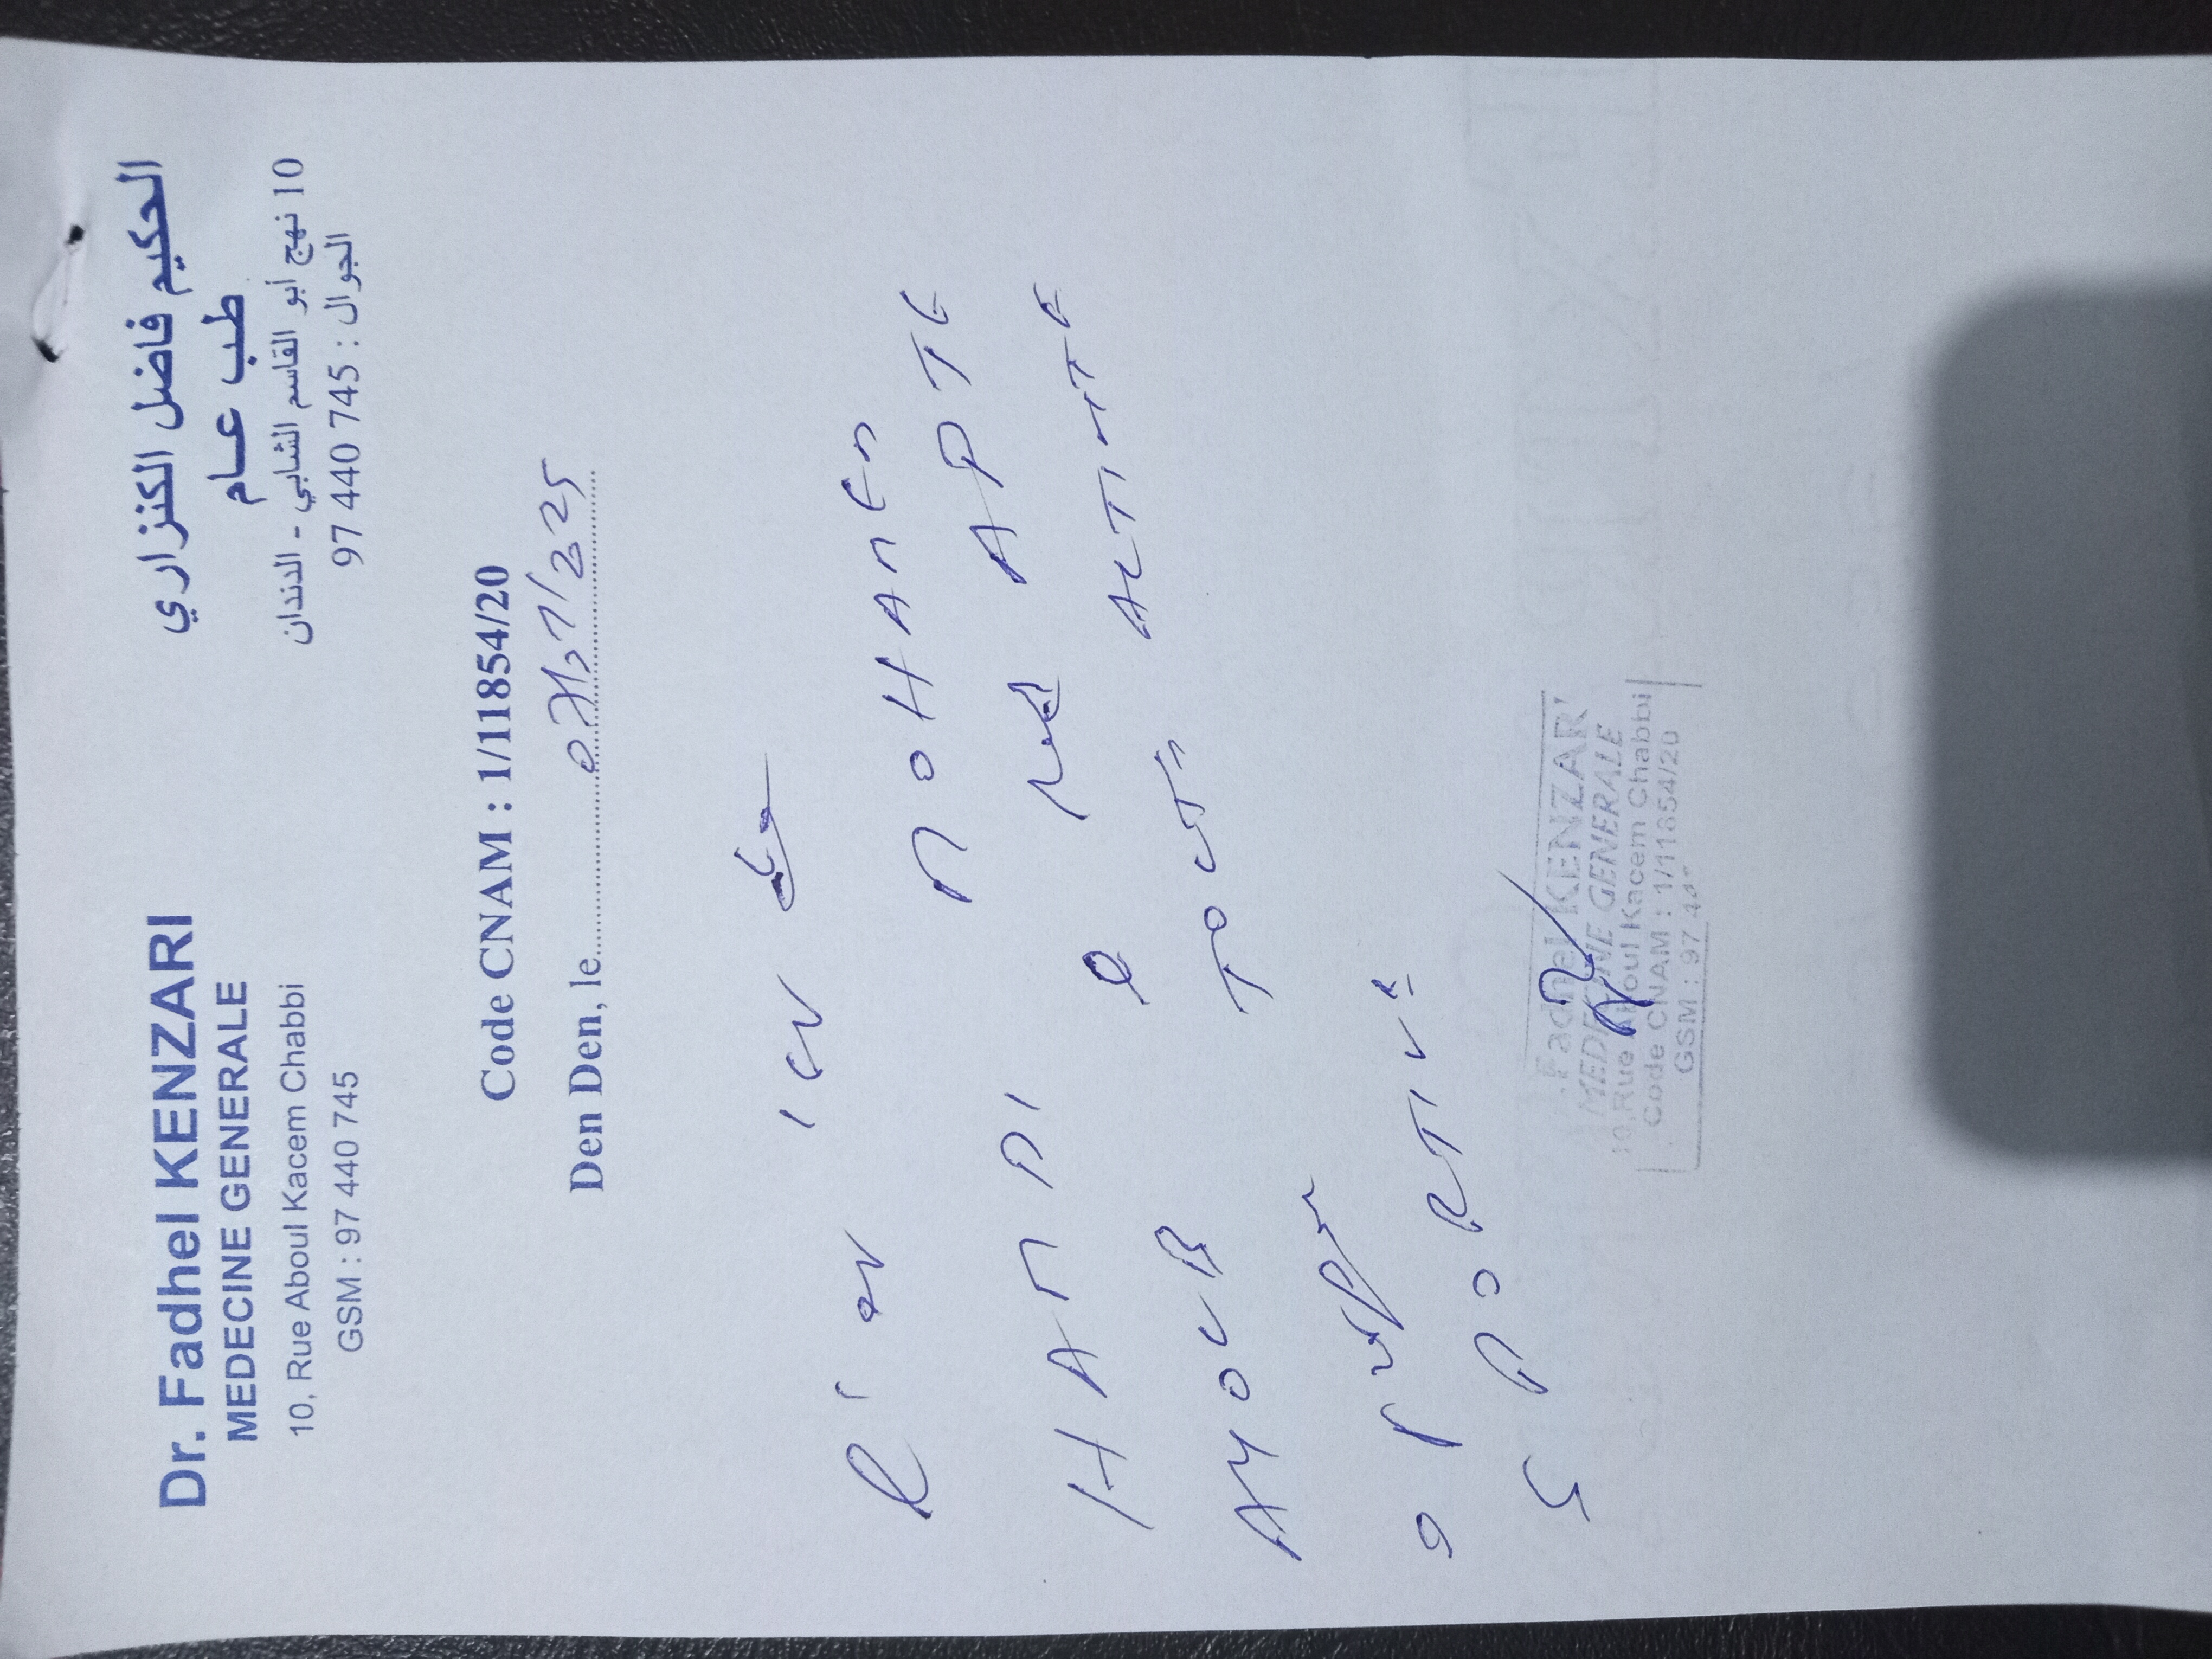 Dr. Fadhel KENZARI
MEDECINE GENERALE
10, Rue Aboul Kacem Chabbi
GSM : 97 440 745
الحكيم فاضل الكنزاري
طب عــام
10 نهج أبو القاسم الشابي - الدندان
الجوال : 745 440 97
Code CNAM : 1/11854/20
Den Den, le
MOHAMED
HAMDI APTE
AYOUB TOUTE ACTIVITE
SPORTIVE
Fadhel KENZARI
MEDECINE GENERALE
10, Rue Aboul Kacem Chabbi
Code CNAM : 1/11854/20
GSM : 97